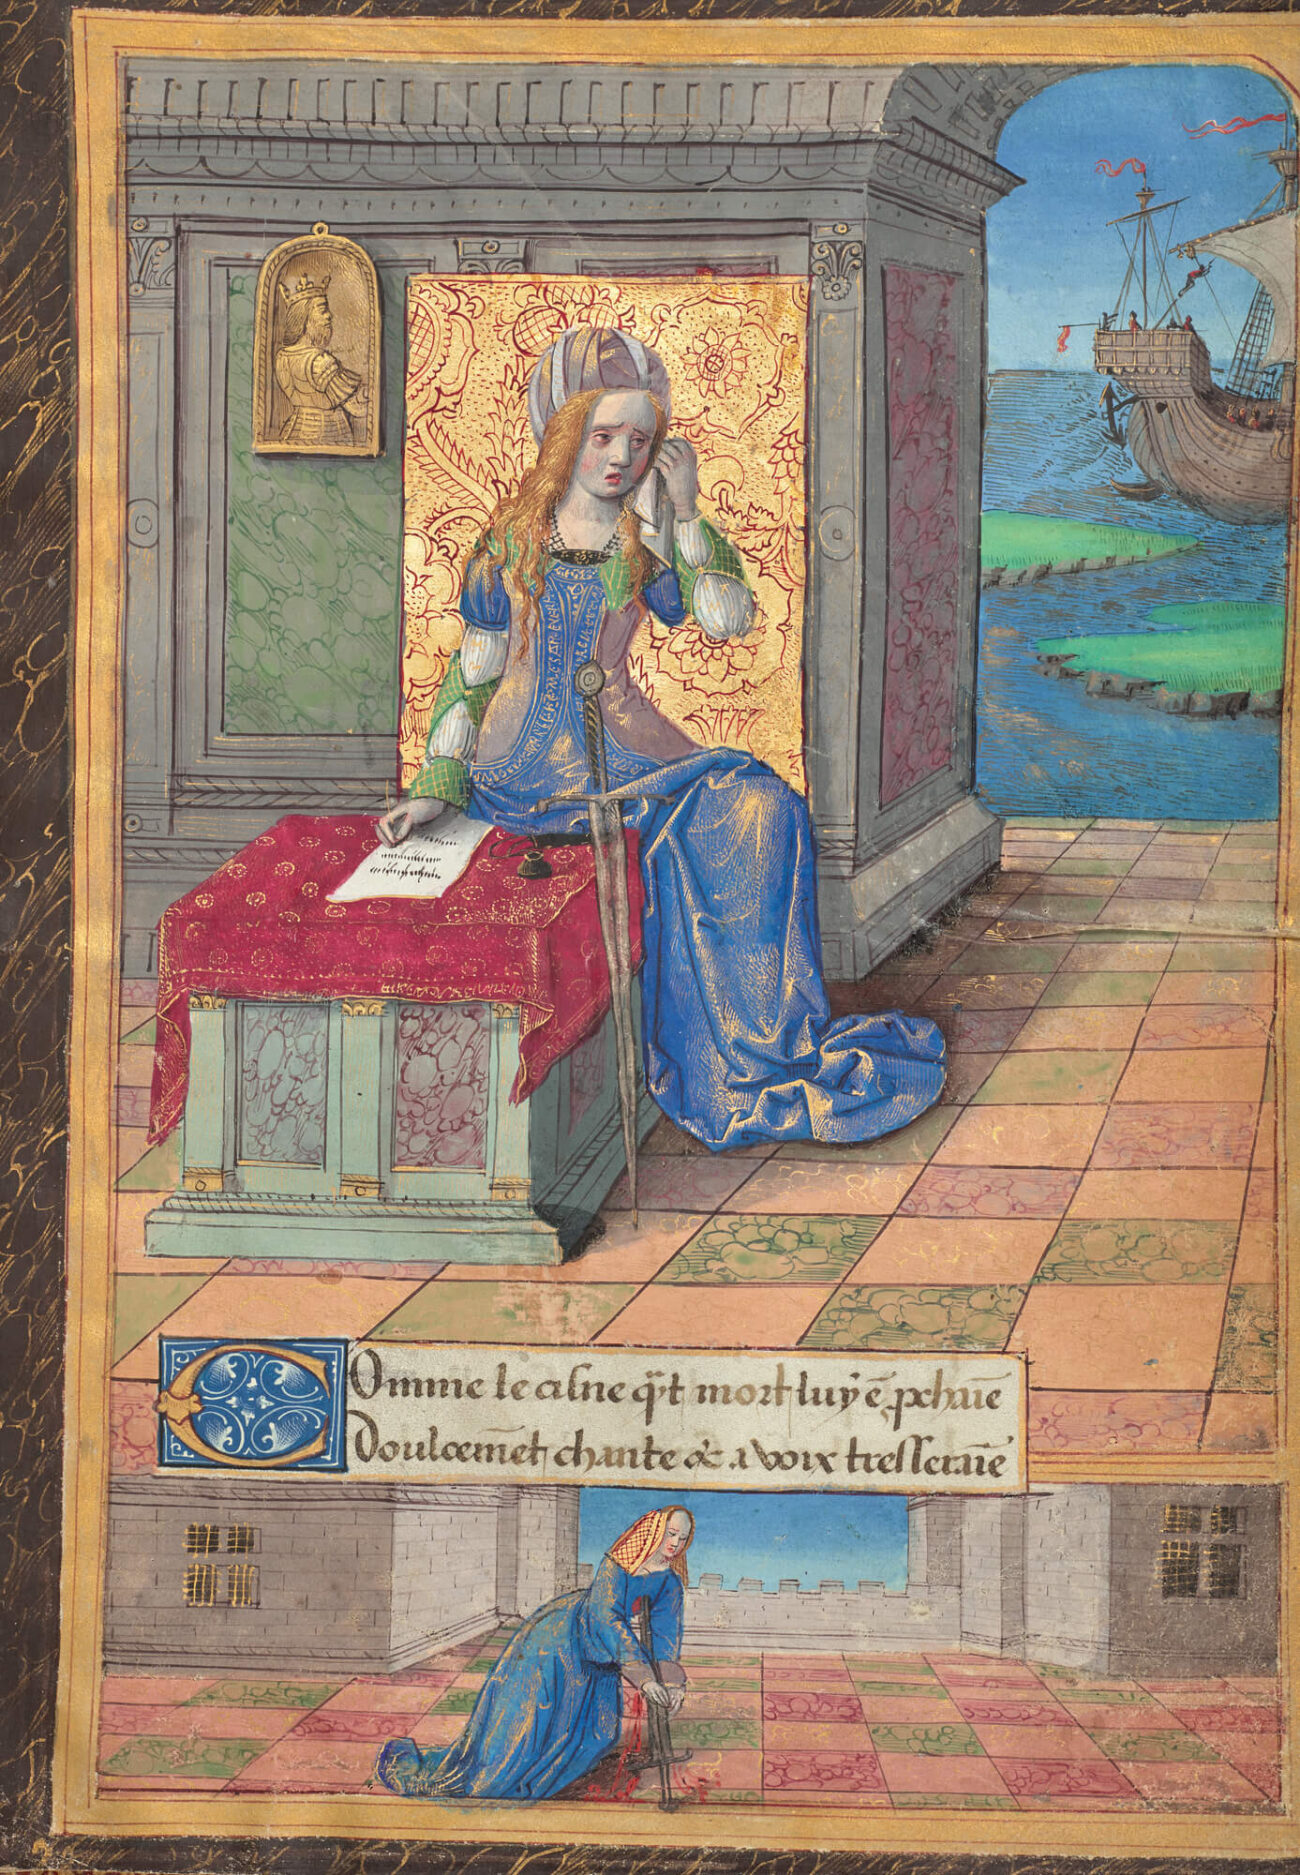 Comme le cisne qͣt mort luy ē ꝓchaīe
Doulcemēt chante & a voix tresseraīe